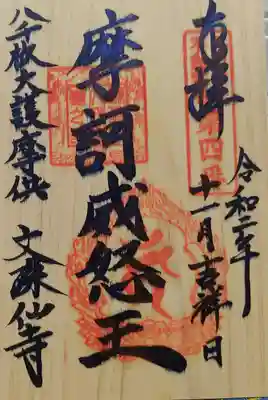 奉拝
令和二年
十一月吉祥日
摩訶威怒王
八千枚大護摩供
文殊仙寺